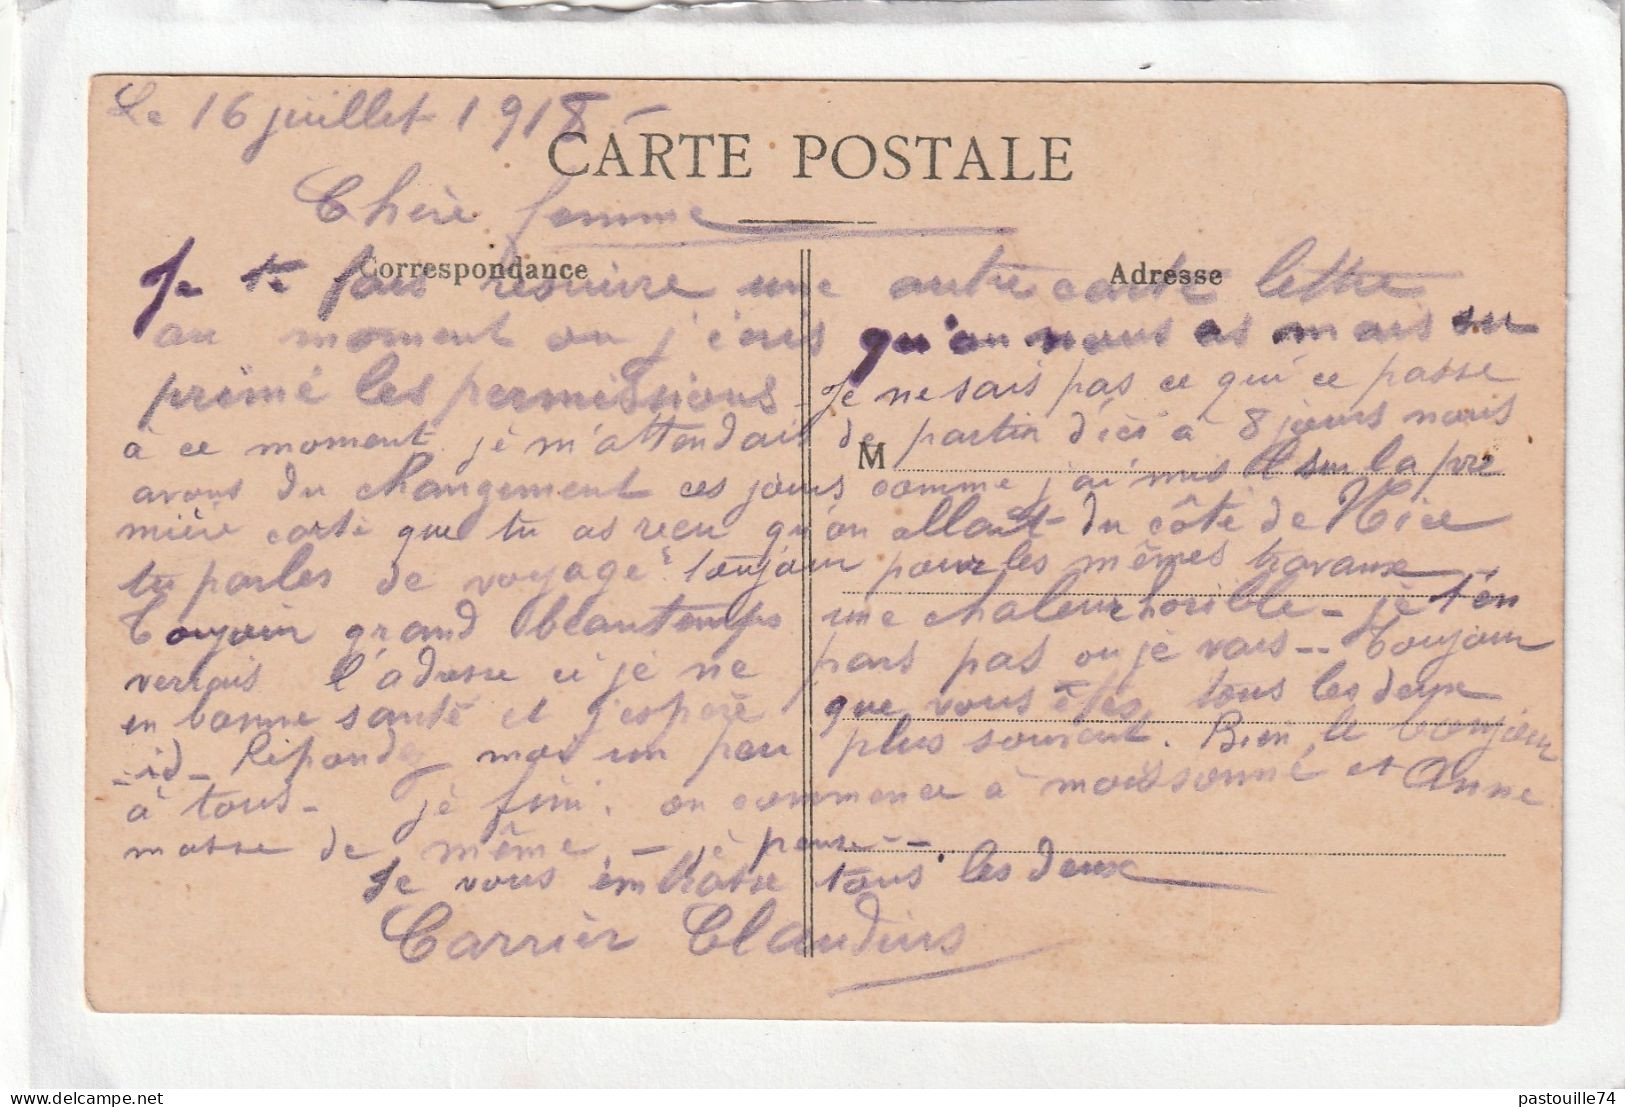 Le 16 juillet 1918 -
CARTE POSTALE
Chère femme
Correspondance
Adresse
Je te fais resuivre une autre carte lettre
au moment ou j'
qu'on nous as mais su
primé les permissions - Je ne sais pas ce qui ce passe
à ce moment je m'attendais de partir d'ici à 8 jours nous
M
avons du changement ces jours comme j'ai mis sur la pre
mière carte que tu as reçu qu'on allait du côté de Nice
tu parles de voyage toujour pour les mêmes travaux -
Toujour grand beautemps une chaleur horible - je t'en
verrais l'adresse ci je ne pars pas ou je vais -- Toujour
en bonne santé et j'espère que vous êtes tous les deux
- id - Réponder moi un peu plus souvent. Bien le bonjour
à tous - je fini. on commence à moissonné et Anne
masse de même - je pense --
Je vous embrasse tous les deux
Carrier Claudius
©Delcampe.net
pastouille74